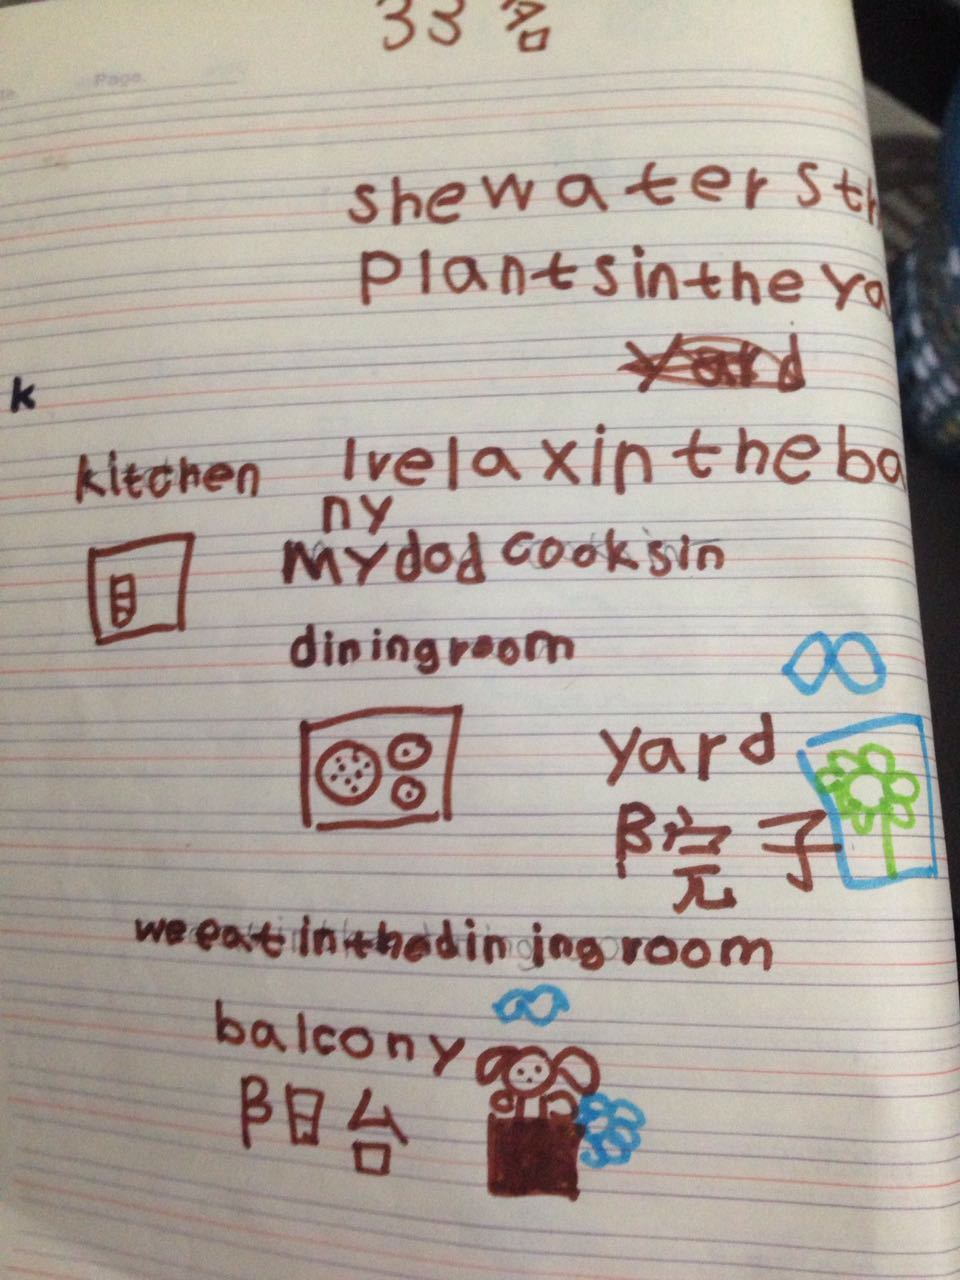 33 名
Page.
she waters th
plants in the ya
yard
k
kitchen
I relax in the ba
ny
My dod cooks in
dining room
yard
院子
we eat in the dining room
balcony
阳台